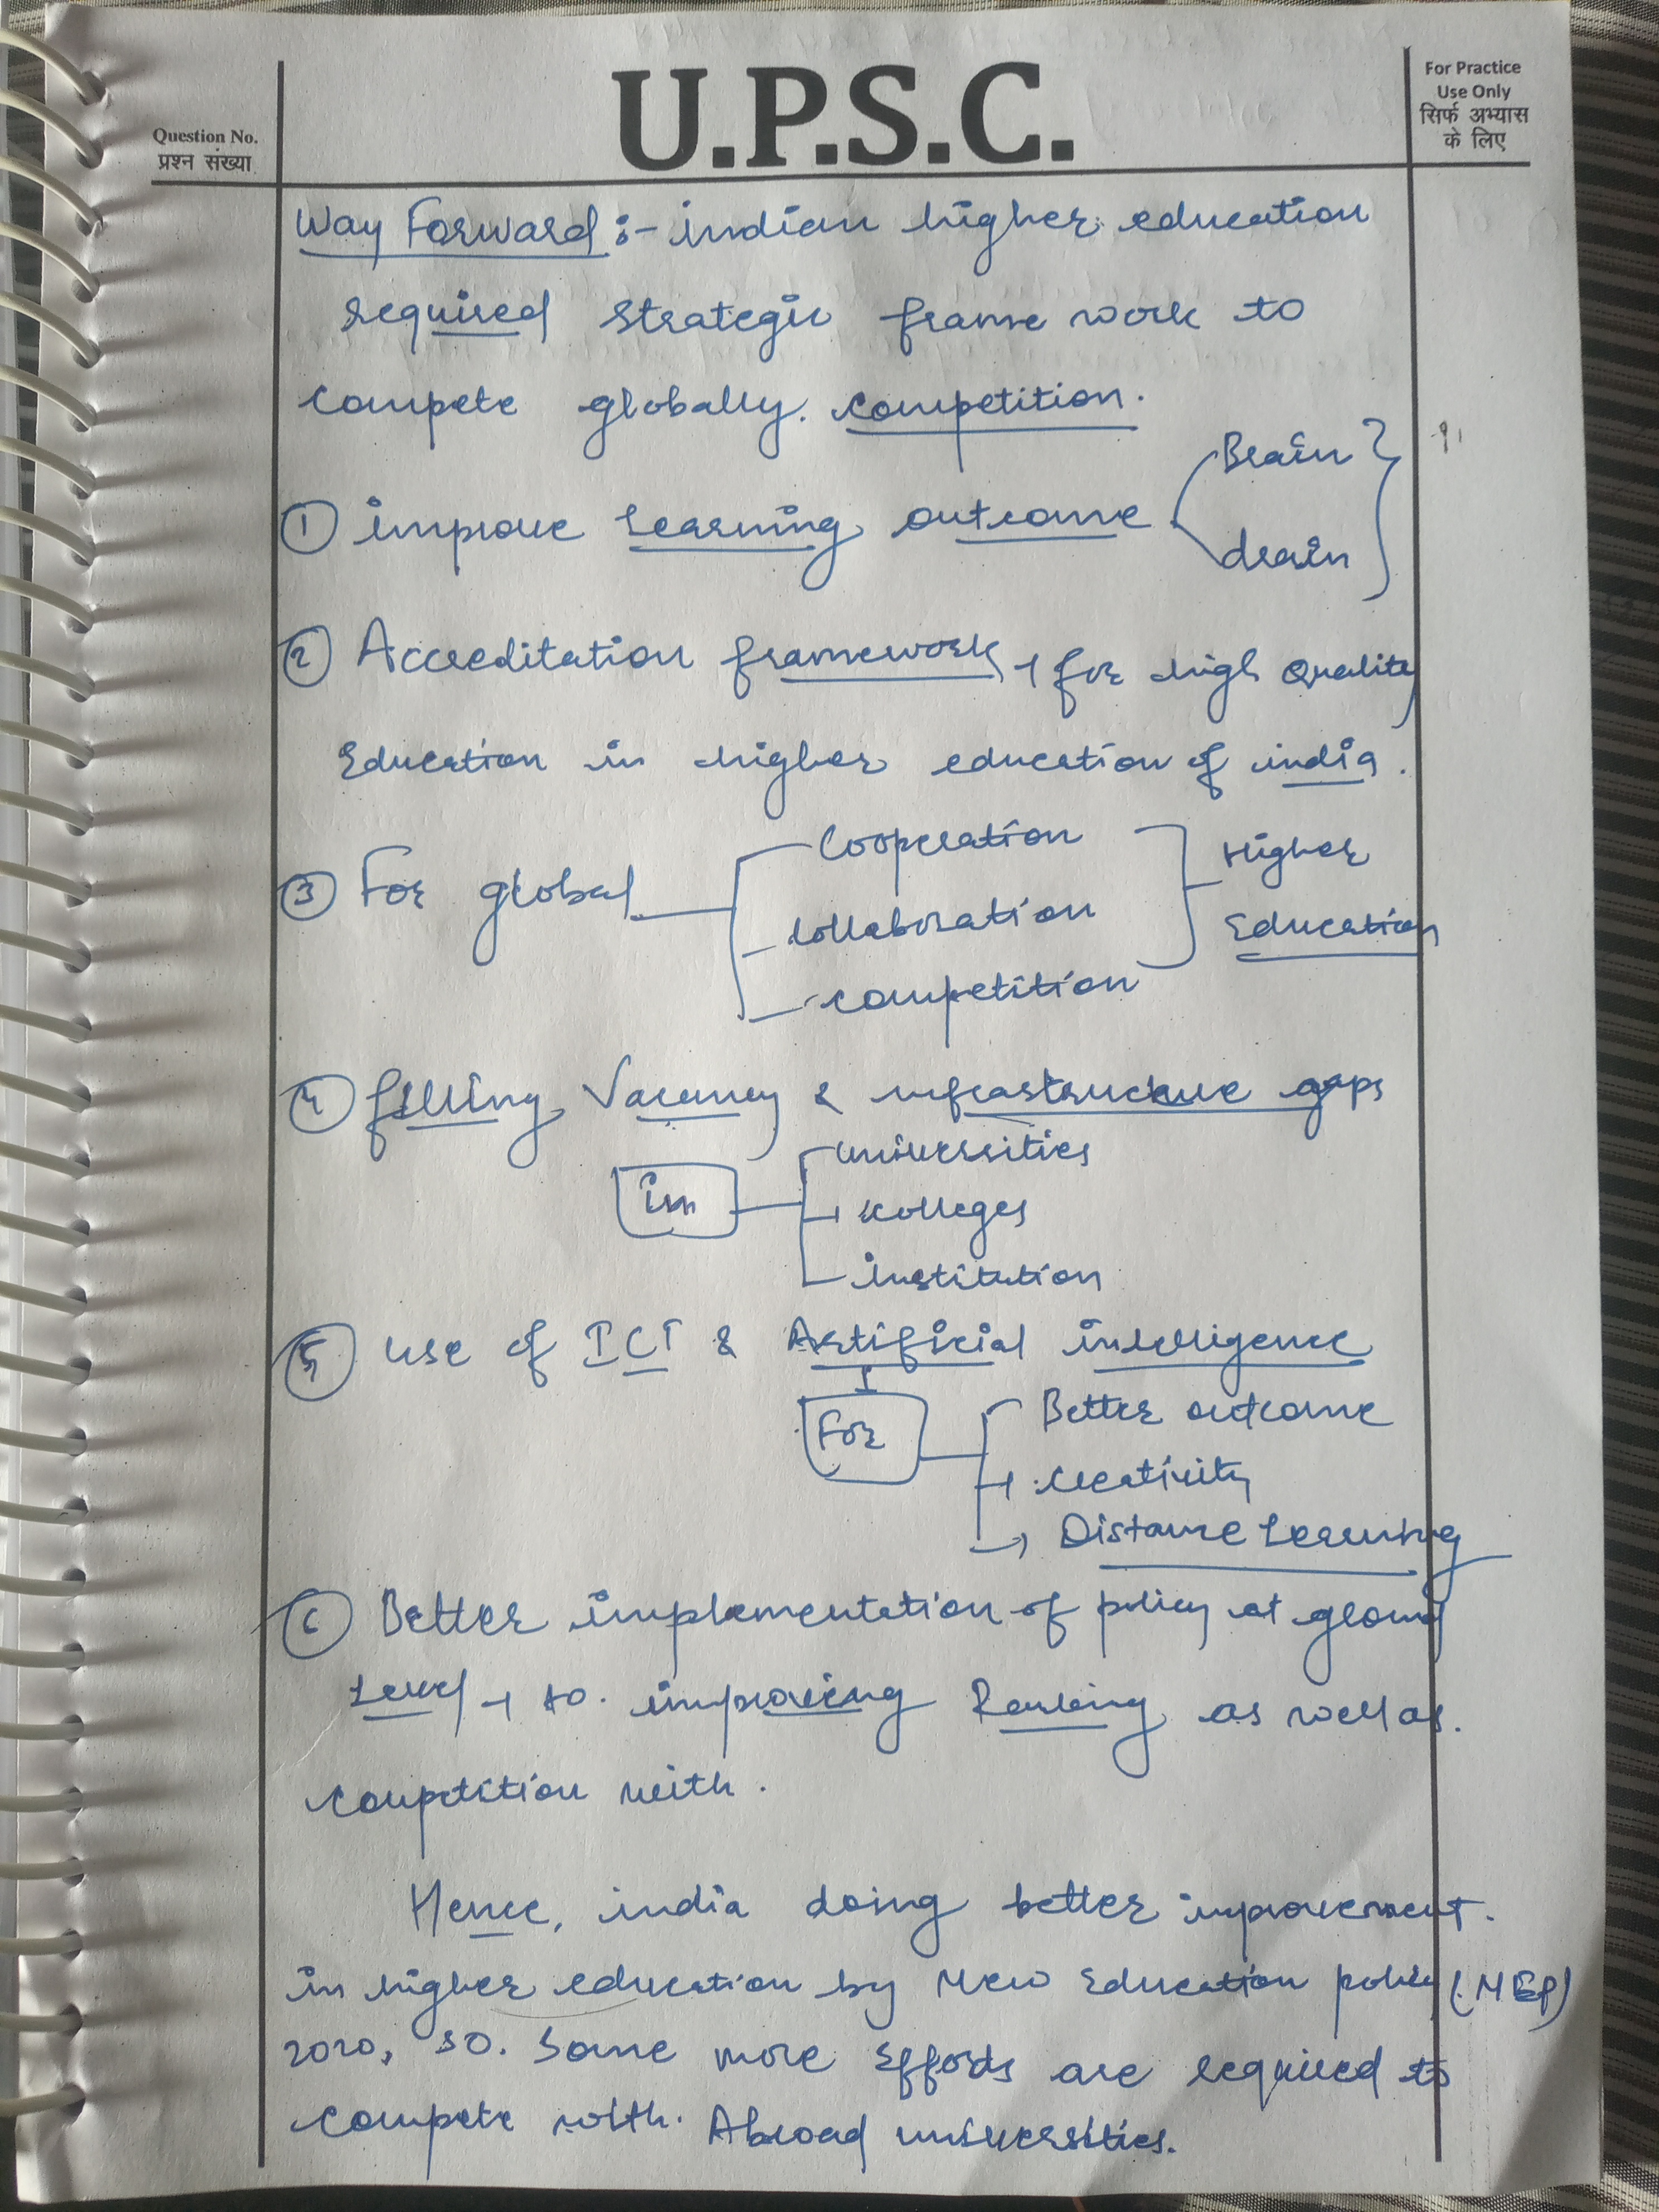 Question No.
प्रश्न संख्या
U.P.S.C.
For Practice
Use Only
सिर्फ अभ्यास
के लिए
Way Forward :- indian higher education
required strategic frame work to
compete globally. competition.
① improve learning outcome
Brain
drain
② Accreditation framework → for high Quality
Education in higher education of india.
③ For global
Cooperation
collaboration
competition
Higher
Education
④ filling Vacancy & infrastructure gaps
in
universities
colleges
institution
⑤ use of ICT & Artificial intelligence
For
Better outcome
creativity
Distance learning
⑥ Better implementation of policy at ground
level → so. improving Ranking as well as.
competition with.
Hence, india doing better improvement.
in higher education by New Education policy (NEP)
2020, so. Some more Efforts are required to
compete with. Abroad universities.